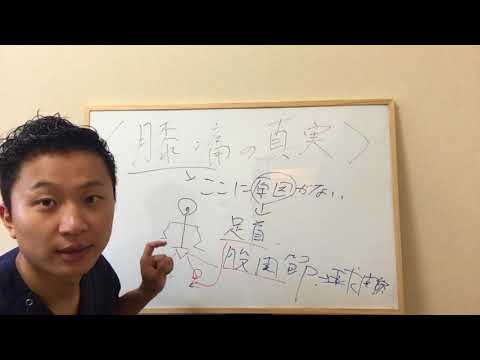 〈膝痛の真実〉
→ここに原因がない、、
足首
股関節